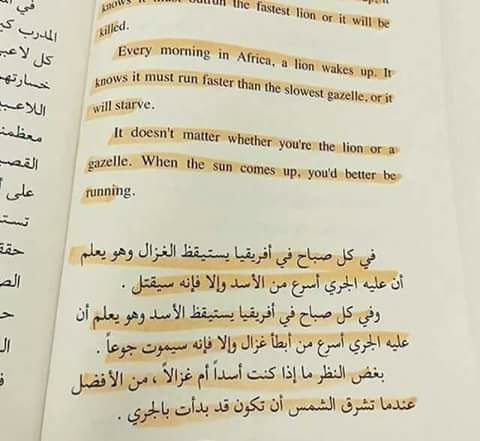 knows it must outrun the fastest lion or it will be
killed.
Every morning in Africa, a lion wakes up. It
knows it must run faster than the slowest gazelle, or it
will starve.
It doesn't matter whether you're the lion or a
gazelle. When the sun comes up, you'd better be
running.
في كل صباح في أفريقيا يستيقظ الغزال وهو يعلم
أن عليه الجري أسرع من الأسد وإلا فإنه سيقتل .
وفي كل صباح في أفريقيا يستيقظ الأسد وهو يعلم أن
عليه الجري أسرع من أبطأ غزال وإلا فإنه سيموت جوعاً .
بغض النظر ما إذا كنت أسداً أم غزالاً ، من الأفضل
عندما تشرق الشمس أن تكون قد بدأت بالجري .
المدرب
كل
خسارتهم
معظم
على